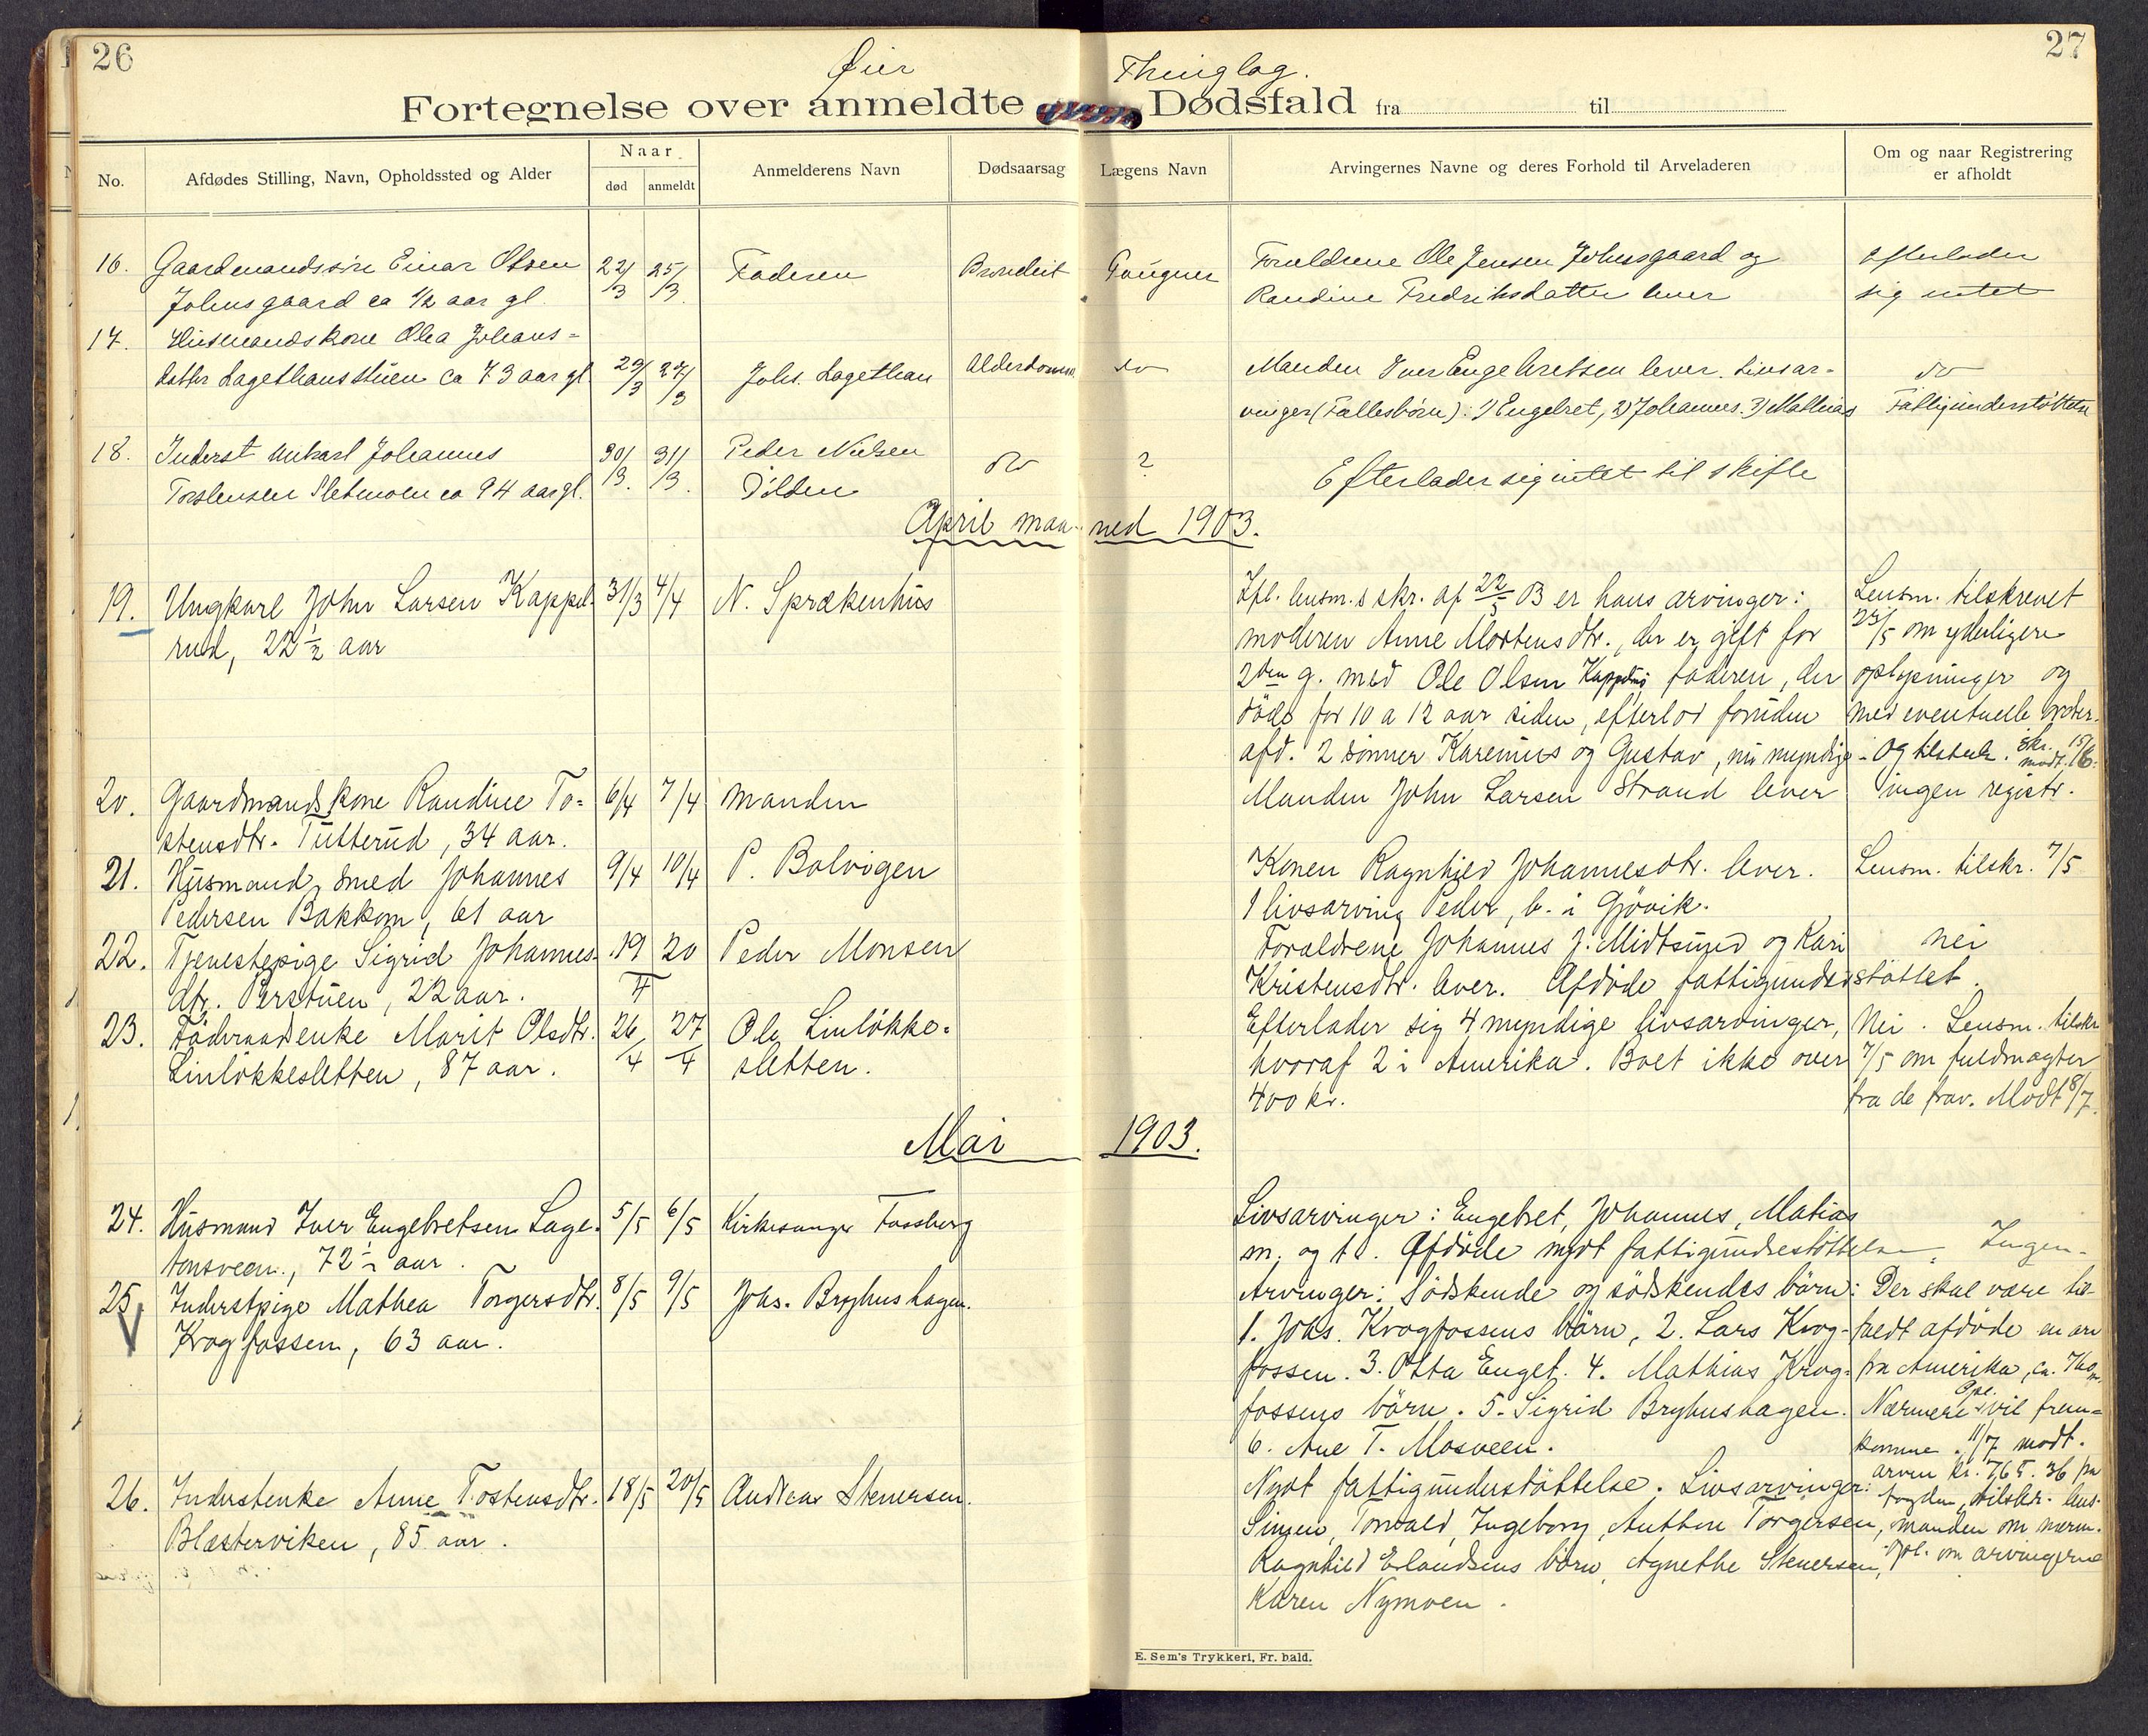 26
27
Øier Thinglag.
Fortegnelse over anmeldte Dødsfald fra til
No.
Afdødes Stilling, Navn, Opholdssted og Alder
Naar
død anmeldt
Anmelderens Navn
Dødsaarsag
Lægens Navn
Arvingernes Navne og deres Forhold til Arveladeren
Om og naar Registrering
er afholdt
16. Gaardmandssøn Einar Olsen 22/3 25/3 Faderen Bronchit Forældrene Ole Jensen Johnsgaard og efterlader
Johnsgaard ca 1/2 aar gl. Randine Fredriksdatter lever sig intet
17. Husmandskone Olea Johans=
datter Lagethansstuen ca 73 aar gl. 27/3 Johs. Lagethan Alderdom do Manden Iver Engebretsen lever. Livsar- do
vinger (Fællesbörn): 1) Engebret, 2) Johannes. 3) Mathias Fattigunderstöttelse
18. Inderst unkarl Johannes 30/3. 31/3. Peder Nielsen do ? Efterlader sig intet til skifte
Torstensen Sletmoen ca 94 aar gl.
April maaned 1903.
19. Ungkarl John Larsen Kappel- 31/3 4/4 N. Sprækenhus Ifl. lensm.s skr. af 22/5 03 er hans arvinger: Lensm. tilskrevet
rud, 22 1/2 aar moderen Anne Mortensdtr., der er gift for 23/5 om yderligere
2den g. med Ole Olsen faderen, der oplysninger og
døde for 10 a 12 aar siden, efterlod foruden med eventuelle
afd. 2 sönner Karenius og Gustav, nu myndige.
20. Gaardmandskone Randine To= 6/4 7/4 Manden Manden John Larsen Strand lever ingen registr.
stensdtr. Tutterud, 34 aar.
21. Husmand, smed Johannes 9/4 10/4 P. Bolvigen Konen Ragnhild Johannesdtr. lever. Lensm. tilskr. 7/5
Pedersen Bakkom, 61 aar 1 livsarving Peder, b. i Gjövik.
22. Tjenestepige Sigrid Johannes- 19 20 Peder Monsen Forældrene Johannes J. Midtsund og Kari nei
dtr. Perstuen, 22 aar. 4 Kristensdtr. lever. Afdöde fattigunderstöttet.
23. Föderaadenke Marit Olsdtr. 26/4 27/4 Ole Linløkke= Efterlader sig 4 myndige livsarvinger, Nei. Lensm. tilskr.
Linlökkesletten, 87 aar. sletten. hvoraf 2 i Amerika. Boet ikke over 7/5 om fuldmagter
400 kr. fra de frav. Modt 8/7.
Mai 1903.
24. Husmand Iver Engebretsen Lage- 5/5 6/5 Kirkesanger Fossberg Livsarvinger: Engebret, Johannes, Matias
tonsveen, 72 1/2 aar. m. og t. Afdöde nydt fattigunderstöttelse. Ingen.
25. Inderstpige Mathea Torgersdtr. 8/5 9/5 Johs. Bryhushagen. Arvinger: Södskende og södskendes börn: Der skal være til-
Krogfossen, 63 aar. 1. Johs. Krogfossens börn, 2. Lars Krog- faldt afdöde en arv
fossen. 3. Otta Enget. 4. Mathias Krog- fra Amerika, ca.
fossens börn. 5. Sigrid Bryhushagen. Nærmere opl. vil frem=
6. Ane T. Mosveen. komme. 11/7 modt.
arven kr. 765.36 fra
26. Inderstenke Anne Tostensdtr. 18/5 20/5 Andreas Stenersen. Nydt fattigunderstöttelse. Livsarvinger: fogden, tilskr. lens-
Blæsterviken, 85 aar. Simen, Torvald, Ingeborg, Anthon Torgersen, manden om nærm.
Ragnhild Erlandsens börn, Agnethe Stenersen, opl. om arvingerne
Karen Nymoen.
E. Sem's Trykkeri, Fr. hald.